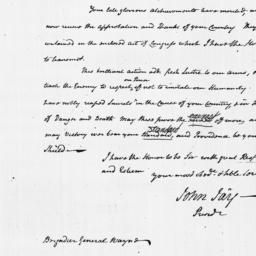 Your late glorious Atchievements have merited, and
now receive the approbation and Thanks of your Country. They
contained in the enclosed act of Congress which I have the Ho
to transmit.
This brilliant action adds fresh Lustre to our Arms, a
teach the Enemy to respect our Power, if not to imitate our Humanity.
have nobly reaped Laurels in the Cause of your Country & in
of Danger and Death. May these prove the earnest of more, an
may Victory ever bear your Standard, and Providence be you
Shield.
I have the Honor to be Sir with great Resp
and Esteem
your most Obedt. & hble Ser
John Jay
Presidt
Brigadier General Wayne